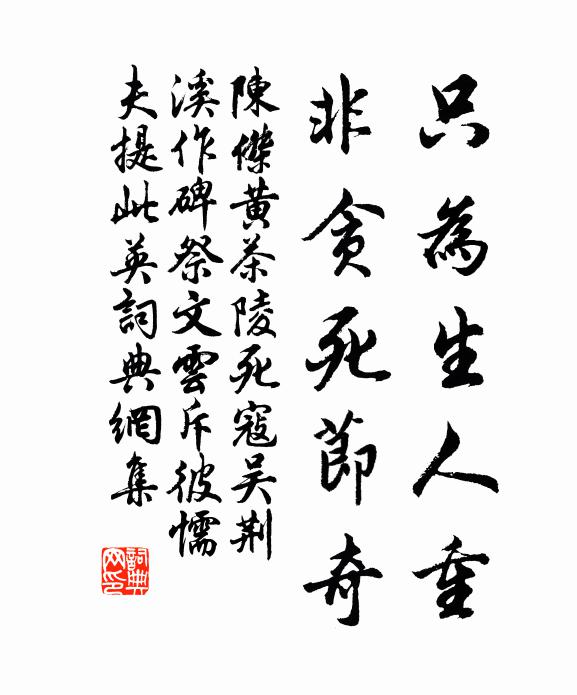 只為生人重
非貪死節奇
陳傑黃茶陵死寇吴荆
溪作碑祭文雲斥彼懦
夫提此英詞典網集
詞典网印